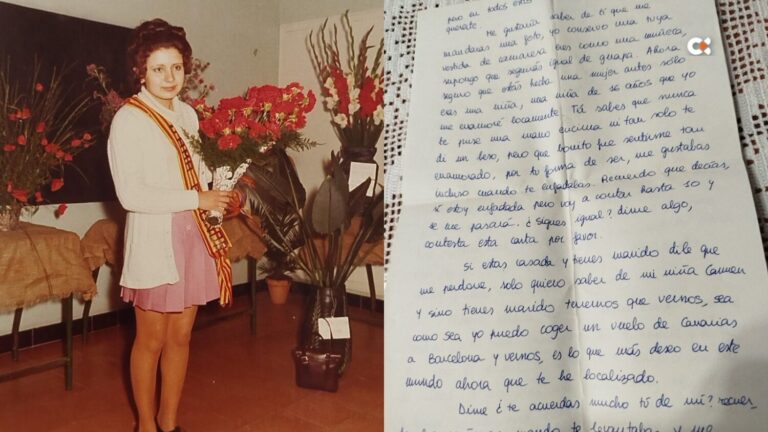 pero en todos estos
quererte. Me gustaría saber de tí que me
mandaras una foto, yo conservo una tuya
vestida de camarera eres como una muñeca,
supongo que seguirás igual de guapa. Ahora
seguro que estás hecha una mujer antes sólo
eras una niña, una niña de 16 años que yo
me enamoré locamente. Tú sabes que nunca
te puse una mano encima ni tan solo te
di un beso, pero que bonito fue sentirme tan
enamorado, por tu forma de ser, me gustabas
incluso cuando te enfadabas. Recuerdo que decías,
sí estoy enfadada pero voy a contar hasta 10 y
se me pasará. ¿Sigues igual? dime algo,
contesta esta carta por favor.
Si estas casada y tienes marido dile que
me perdone, solo quiero saber de mi niña Carmen
y sino tienes marido tenemos que vernos, sea
como sea yo puedo coger un vuelo de Canarias
a Barcelona y vernos, es lo que más deseo en este
mundo ahora que te he localizado.
Dime ¿te acuerdas mucho tú de mí? recuer_
te levantabas y me